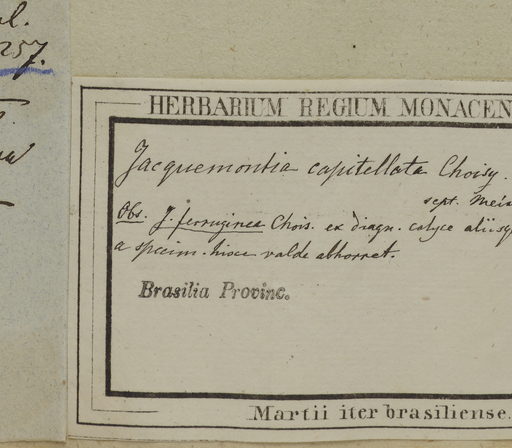 257.
HERBARIUM REGIUM MONACEN
Jacquemontia capitellata Choisy.
sept. Meis
Obs. J. ferruginea Chois. ex diagn. calyce aliisq
a specim. hisce valde abhorret.
Brasilia Provinc.
Martii iter brasiliense.